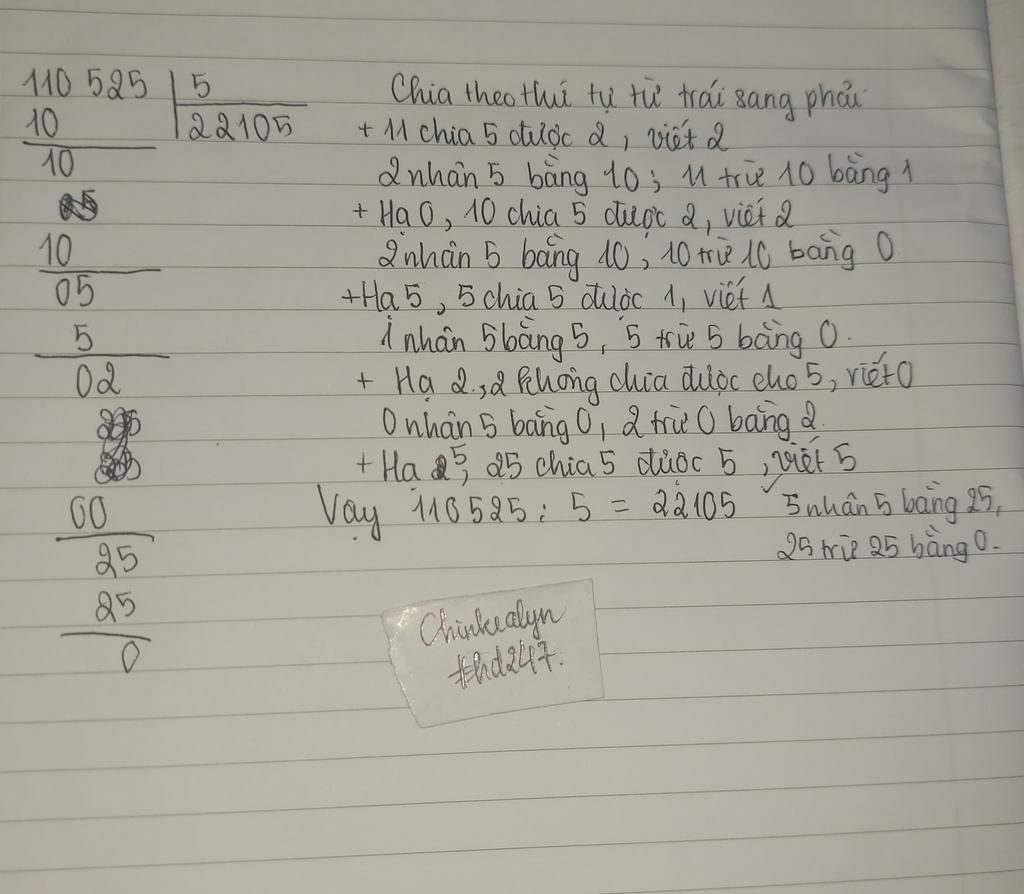 110 525 | 5
10 22105
10
10
05
5
02
00
25
25
0
Chia theo thứ tự từ trái sang phải
+ 11 chia 5 được 2, viết 2
2 nhân 5 bằng 10; 11 trừ 10 bằng 1
+ Hạ 0, 10 chia 5 được 2, viết 2
2 nhân 5 bằng 10, 10 trừ 10 bằng 0
+ Hạ 5, 5 chia 5 được 1, viết 1
1 nhân 5 bằng 5, 5 trừ 5 bằng 0.
+ Hạ 2, 2 không chia được cho 5, viết 0
0 nhân 5 bằng 0, 2 trừ 0 bằng 2
+ Hạ 5, 25 chia 5 được 5, viết 5
5 nhân 5 bằng 25,
25 trừ 25 bằng 0.
Vậy 110525 : 5 = 22105
Chinkealyn
#hd247.